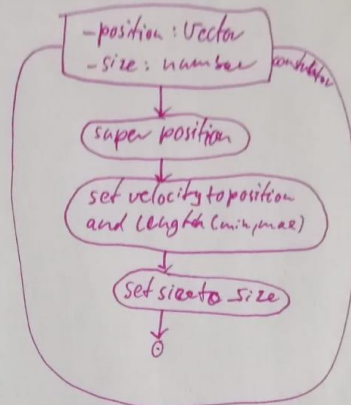 -position: Vector
-size: number
constructor
super position
set velocity to position
and length (min, max)
set size to size